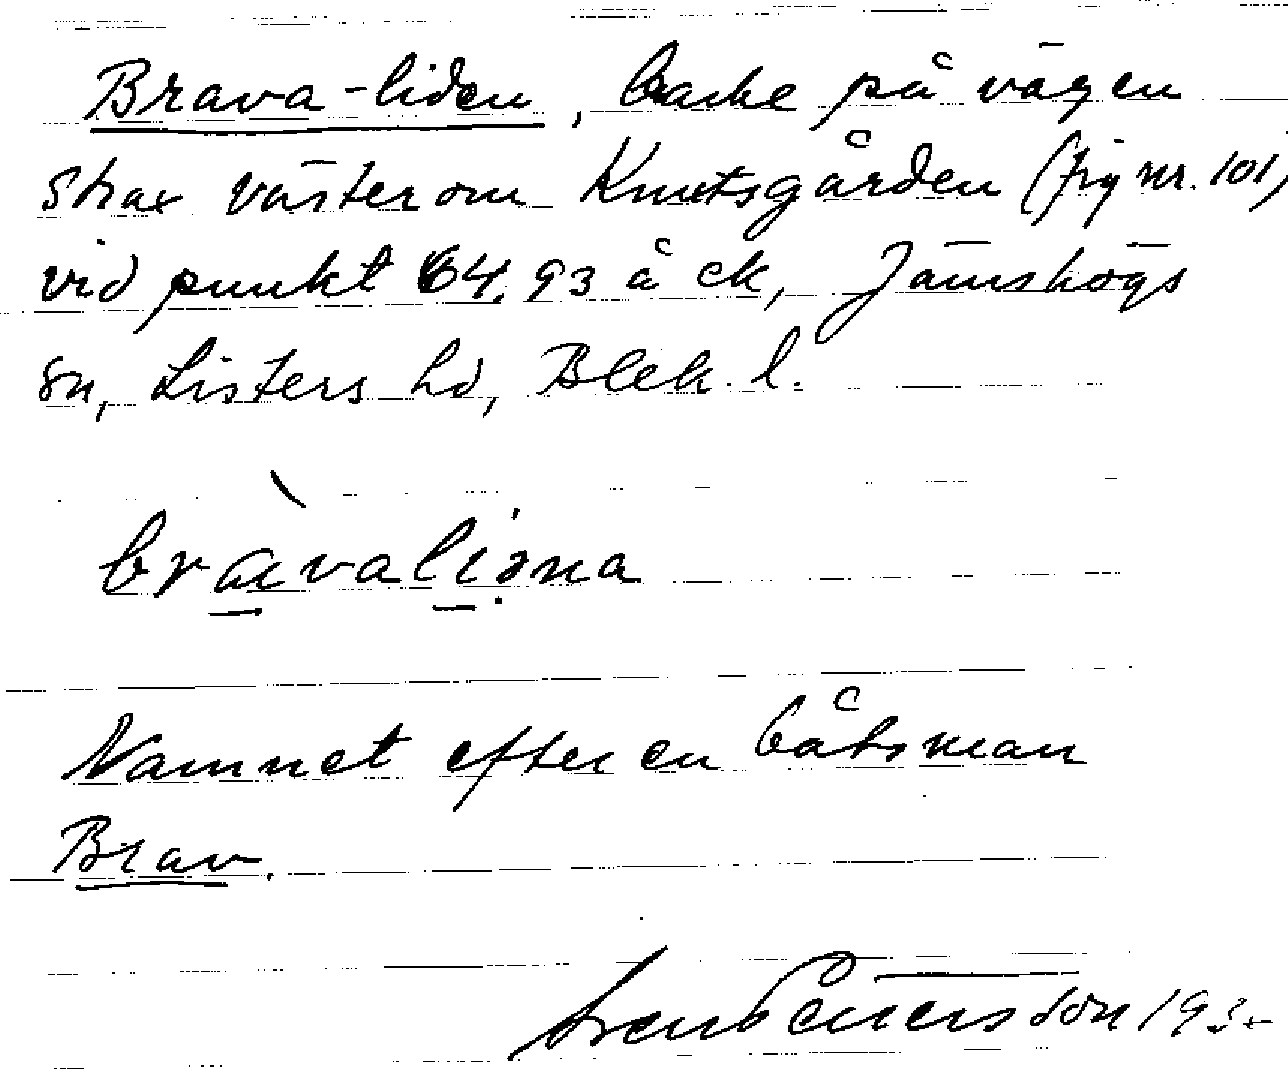 Brava-liden, backe på vägen
strax väster om Knutsgården (frg nr. 101)
vid punkt 64,93 å ek, Jämshögs
sn, Listers hd, Blek. l.
bràvalịəna
Namnet efter en båtsman
Brav.
Pettersson 193